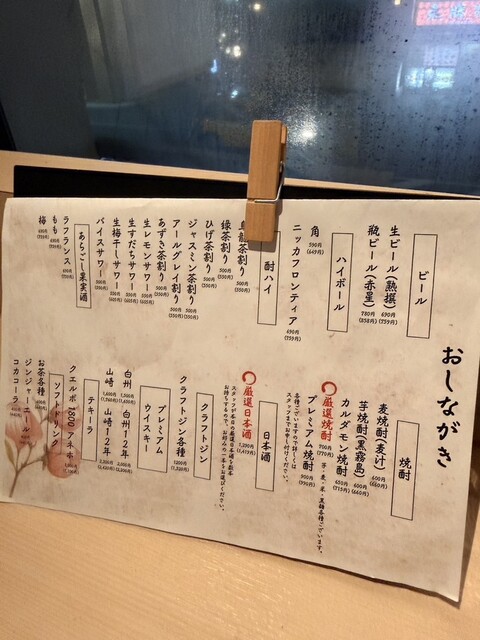 おしながき
ビール
生ビール(熟撰) 690円 (759円)
瓶ビール(赤星) 780円 (858円)
ハイボール
角 590円 (649円)
ニッカフロンティア 690円 (759円)
酎ハイ
烏龍茶割り 500円 (550円)
緑茶割り 500円 (550円)
ひげ茶割り 500円 (550円)
ジャスミン茶割り 500円 (550円)
アールグレイ割り 500円 (550円)
あずき茶割り 500円 (550円)
生レモンサワー 550円 (605円)
生すだちサワー 550円 (605円)
生梅干しサワー 550円 (605円)
バイスサワー
あらごし果実酒
ラフランス
もも
梅
焼酎
麦焼酎(麦汁) 600円 (660円)
芋焼酎(黒霧島) 600円 (660円)
カルダモン焼酎 650円 (715円)
厳選焼酎 700円 (770円) 芋・麦・米・黒糖各種ございます。
プレミアム焼酎 900円 (990円)
各種ございますので詳しくは
スタッフまでお申し付けください。
日本酒
厳選日本酒
スタッフが本日の厳選日本酒を数本
お持ちするので、お好みの一本をお選びください。
クラフトジン
クラフトジン各種 1200円 (1,320円)
プレミアム
ウイスキー
白州 白州12年
山崎 山崎12年
テキーラ
クエルボ1800アネホ
ソフトドリンク
お茶各種
ジンジャーエール
コカコーラ